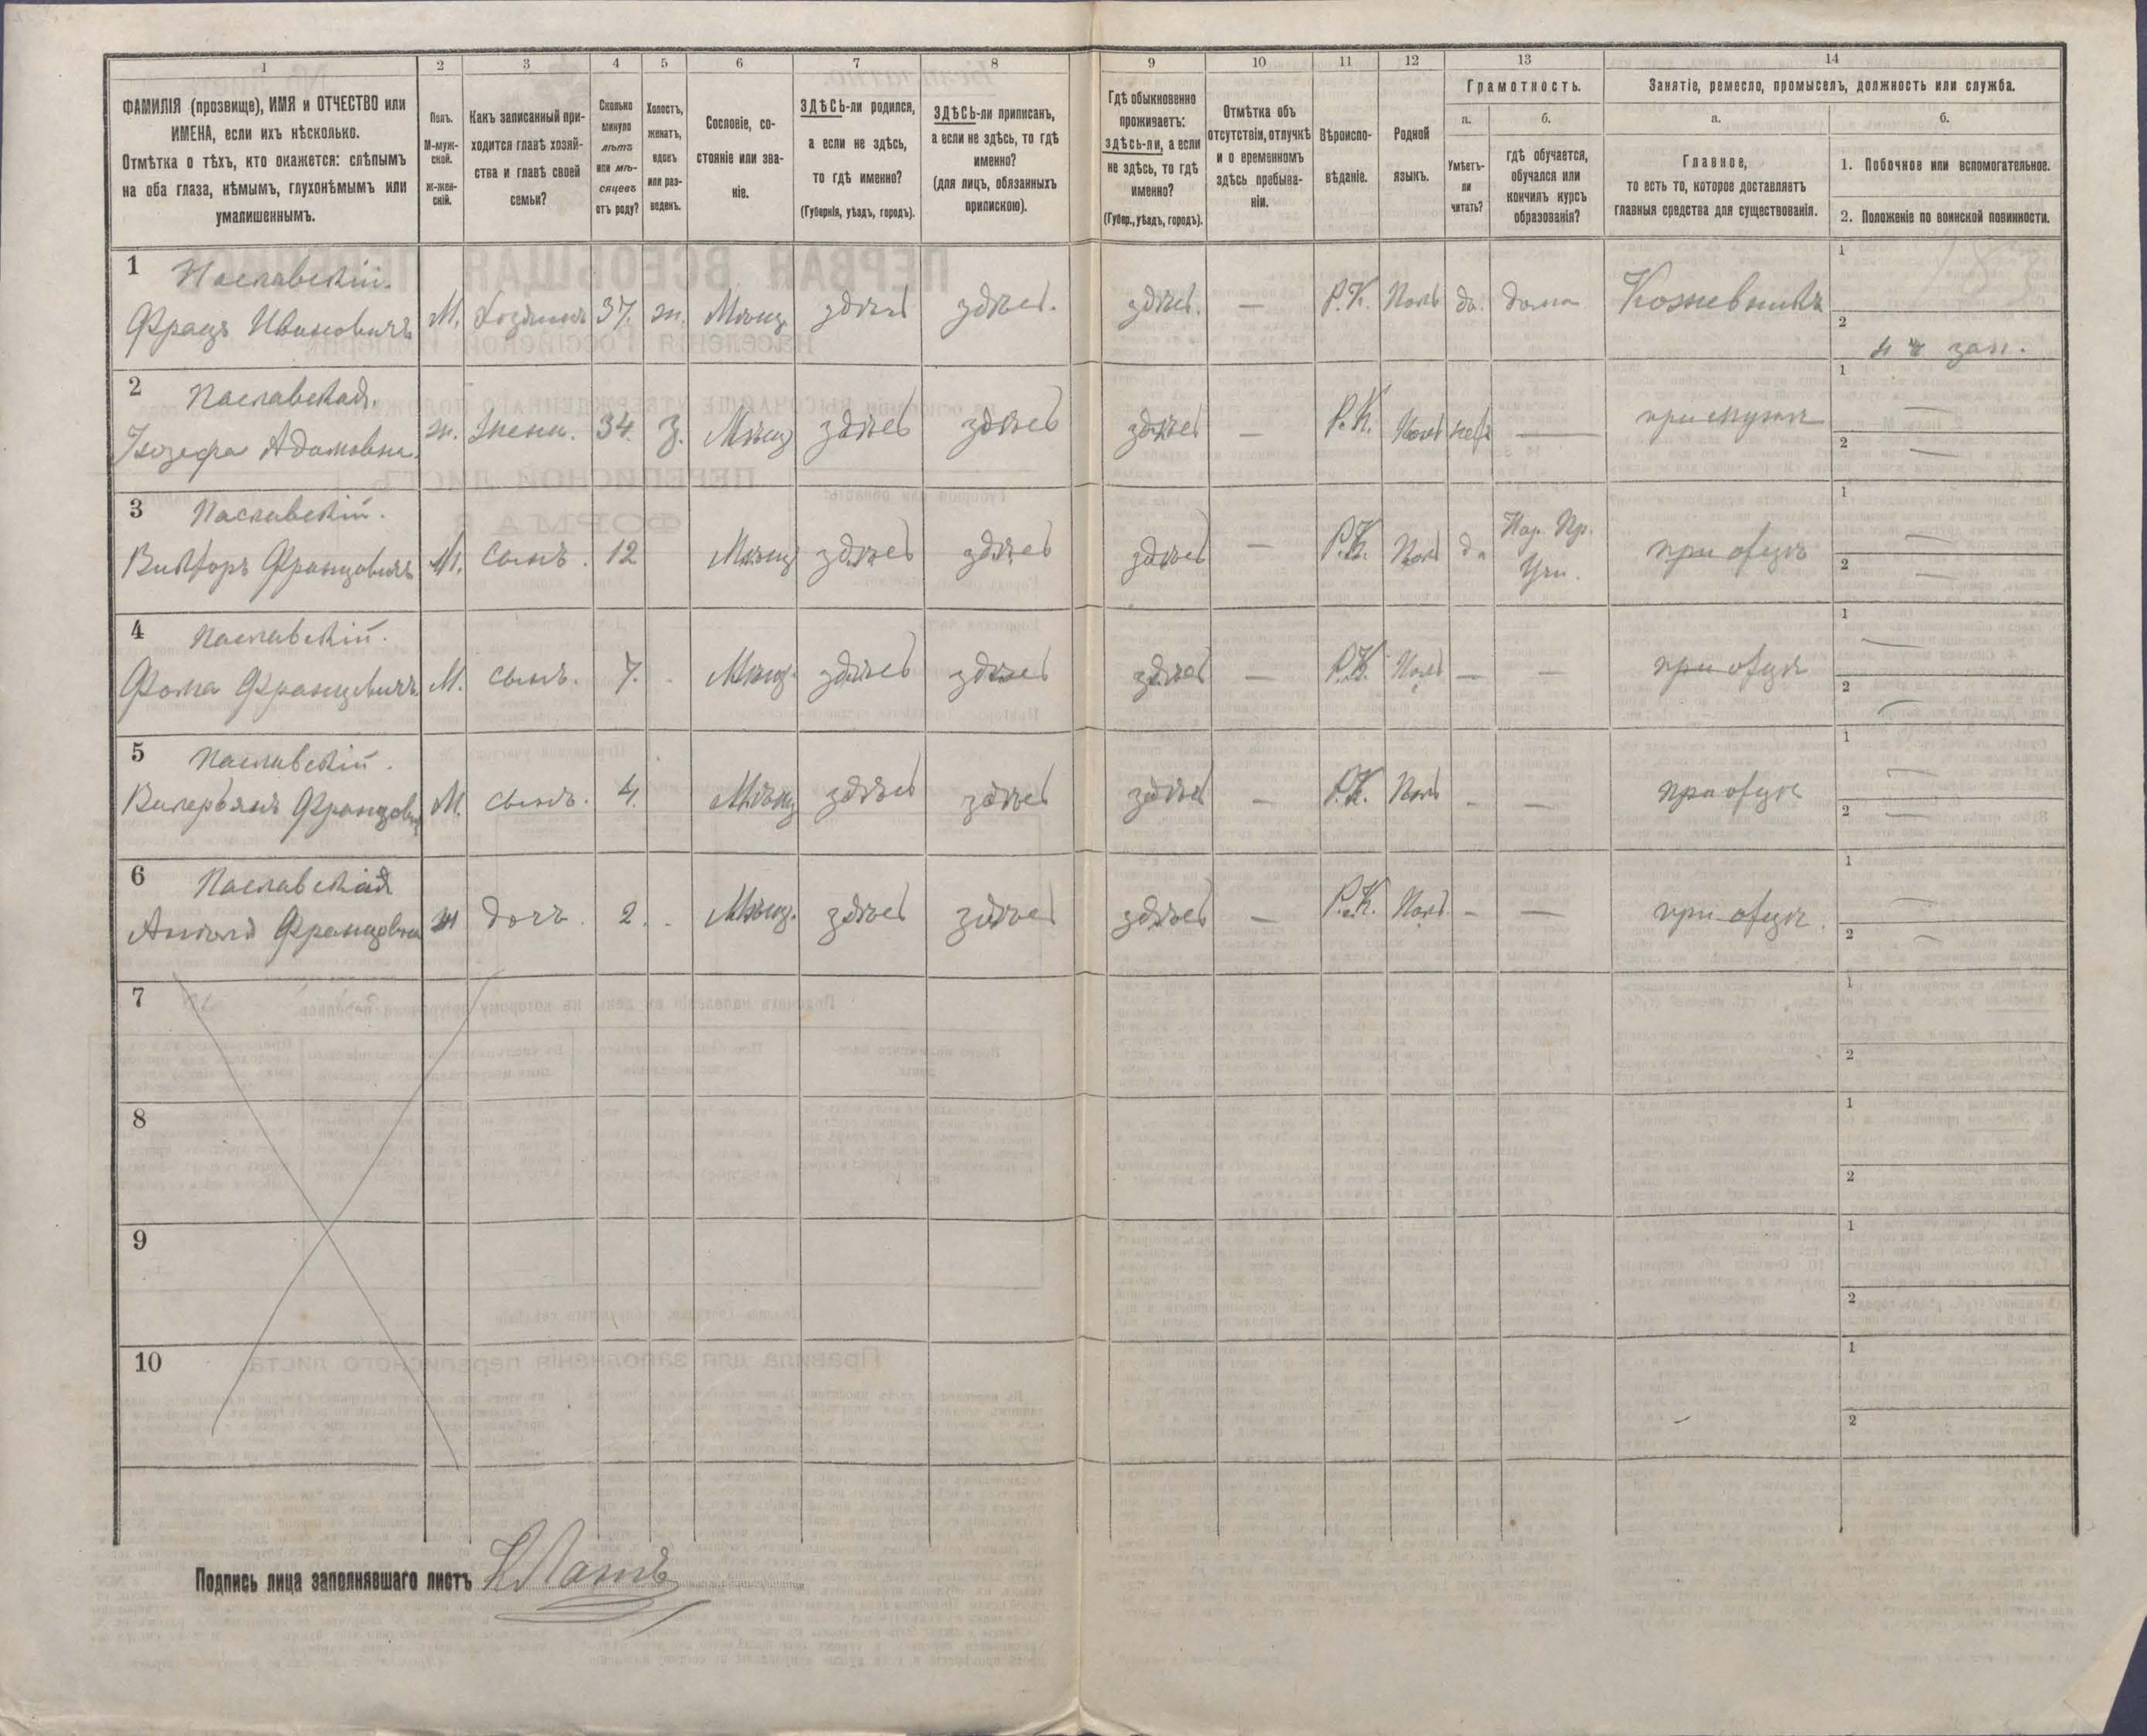 1 2 3 4 5 6 7 8 9 10 11 12 13 14
ФАМИЛІЯ (прозвище), ИМЯ и ОТЧЕСТВО или
ИМЕНА, если ихъ нѣсколько.
Отмѣтка о тѣхъ, кто окажется: слѣпымъ
на оба глаза, нѣмымъ, глухонѣмымъ или
умалишеннымъ.
Полъ.
М-муж-
ской.
ж-жен-
скій.
Какъ записанный при-
ходится главѣ хозяй-
ства и главѣ своей
семьи?
Сколько
минуло
лѣтъ
или мѣ-
сяцевъ
отъ роду?
Холостъ,
женатъ,
вдовъ
или раз-
веденъ.
Сословіе, со-
стояніе или зва-
ніе.
ЗДѢСЬ-ли родился,
а если не здѣсь,
то гдѣ именно?
(Губернія, уѣздъ, городъ).
ЗДѢСЬ-ли приписанъ,
а если не здѣсь, то гдѣ
именно?
(для лицъ, обязанныхъ
припискою).
Гдѣ обыкновенно
проживаетъ:
здѣсь-ли, а если
не здѣсь, то гдѣ
именно?
(Губер., уѣздъ, городъ).
Отмѣтка объ
отсутствіи, отлучкѣ
и о временномъ
здѣсь пребыва-
ніи.
Вѣроиспо-
вѣданіе.
Родной
языкъ.
Грамотность.
а.
Умѣетъ-
ли
читать?
б.
гдѣ обучается,
обучался или
кончилъ курсъ
образованія?
Занятіе, ремесло, промыселъ, должность или служба.
а.
Главное,
то есть то, которое доставляетъ
главныя средства для существованія.
б.
1. Побочное или вспомогательное.
2. Положеніе по воинской повинности.
1 Паславскій.
Францъ Ивановичъ М. Хозяинъ 37. ж. Мѣщ. здѣсь здѣсь. здѣсь. — Р.К. Поль да. дома Кожевникъ 1
2 зап.
2 Паславская.
Іозефа Адамовна ж. жена. 34. З. Мѣщ здѣсь здѣсь здѣсь — Р.К. Поль нетъ — при мужѣ 1 —
2 —
3 Паславскій.
Викторъ Францовичъ М. сынъ. 12 Мѣщ здѣсь здѣсь здѣсь — Р.К. Поль да Нар. Пр.
Учи. при отцѣ 1 —
2 —
4 Паславскій.
Фома Францовичъ М. сынъ. 7. Мѣщ. здѣсь здѣсь здѣсь — Р.К. Поль — — при отцѣ 1 —
2 —
5 Паславскій.
Валерьянъ Францов М. сынъ. 4. Мѣщ здѣсь здѣсь здѣсь — Р.К. Поль - — при отцѣ 1 —
2 —
6 Паславская
Францовна ж дочь. 2. Мѣщ. здѣсь здѣсь здѣсь — Р.К. Поль. - — при отцѣ. 1 —
2 —
7 1
2
8 1
2
9 1
2
10 1
2
Подпись лица заполнявшаго листъ